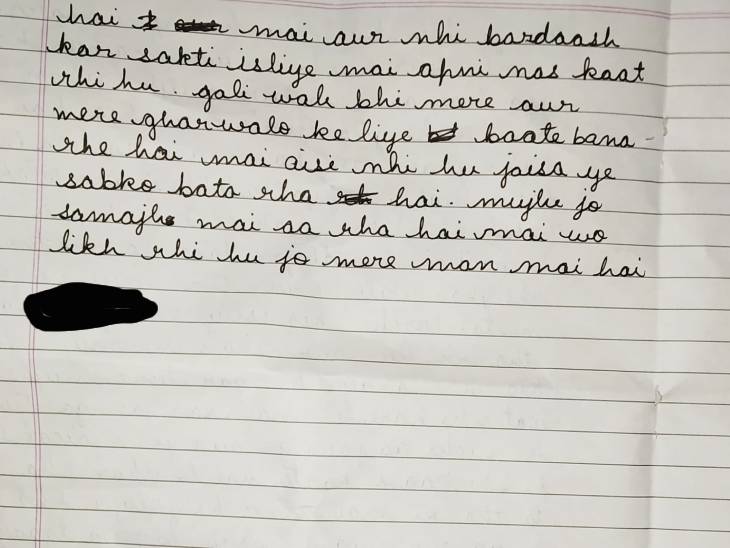 hai mai aur nhi bardaash
kar sakti isliye mai apni nas kaat
rhi hu. gali wale bhi mere aur
mere gharwalo ke liye baate bana-
rhe hai mai aisi nhi hu jaisa ye
sabko bata rha hai. mujhe jo
samajh mai aa rha hai mai wo
likh rhi hu jo mere man mai hai